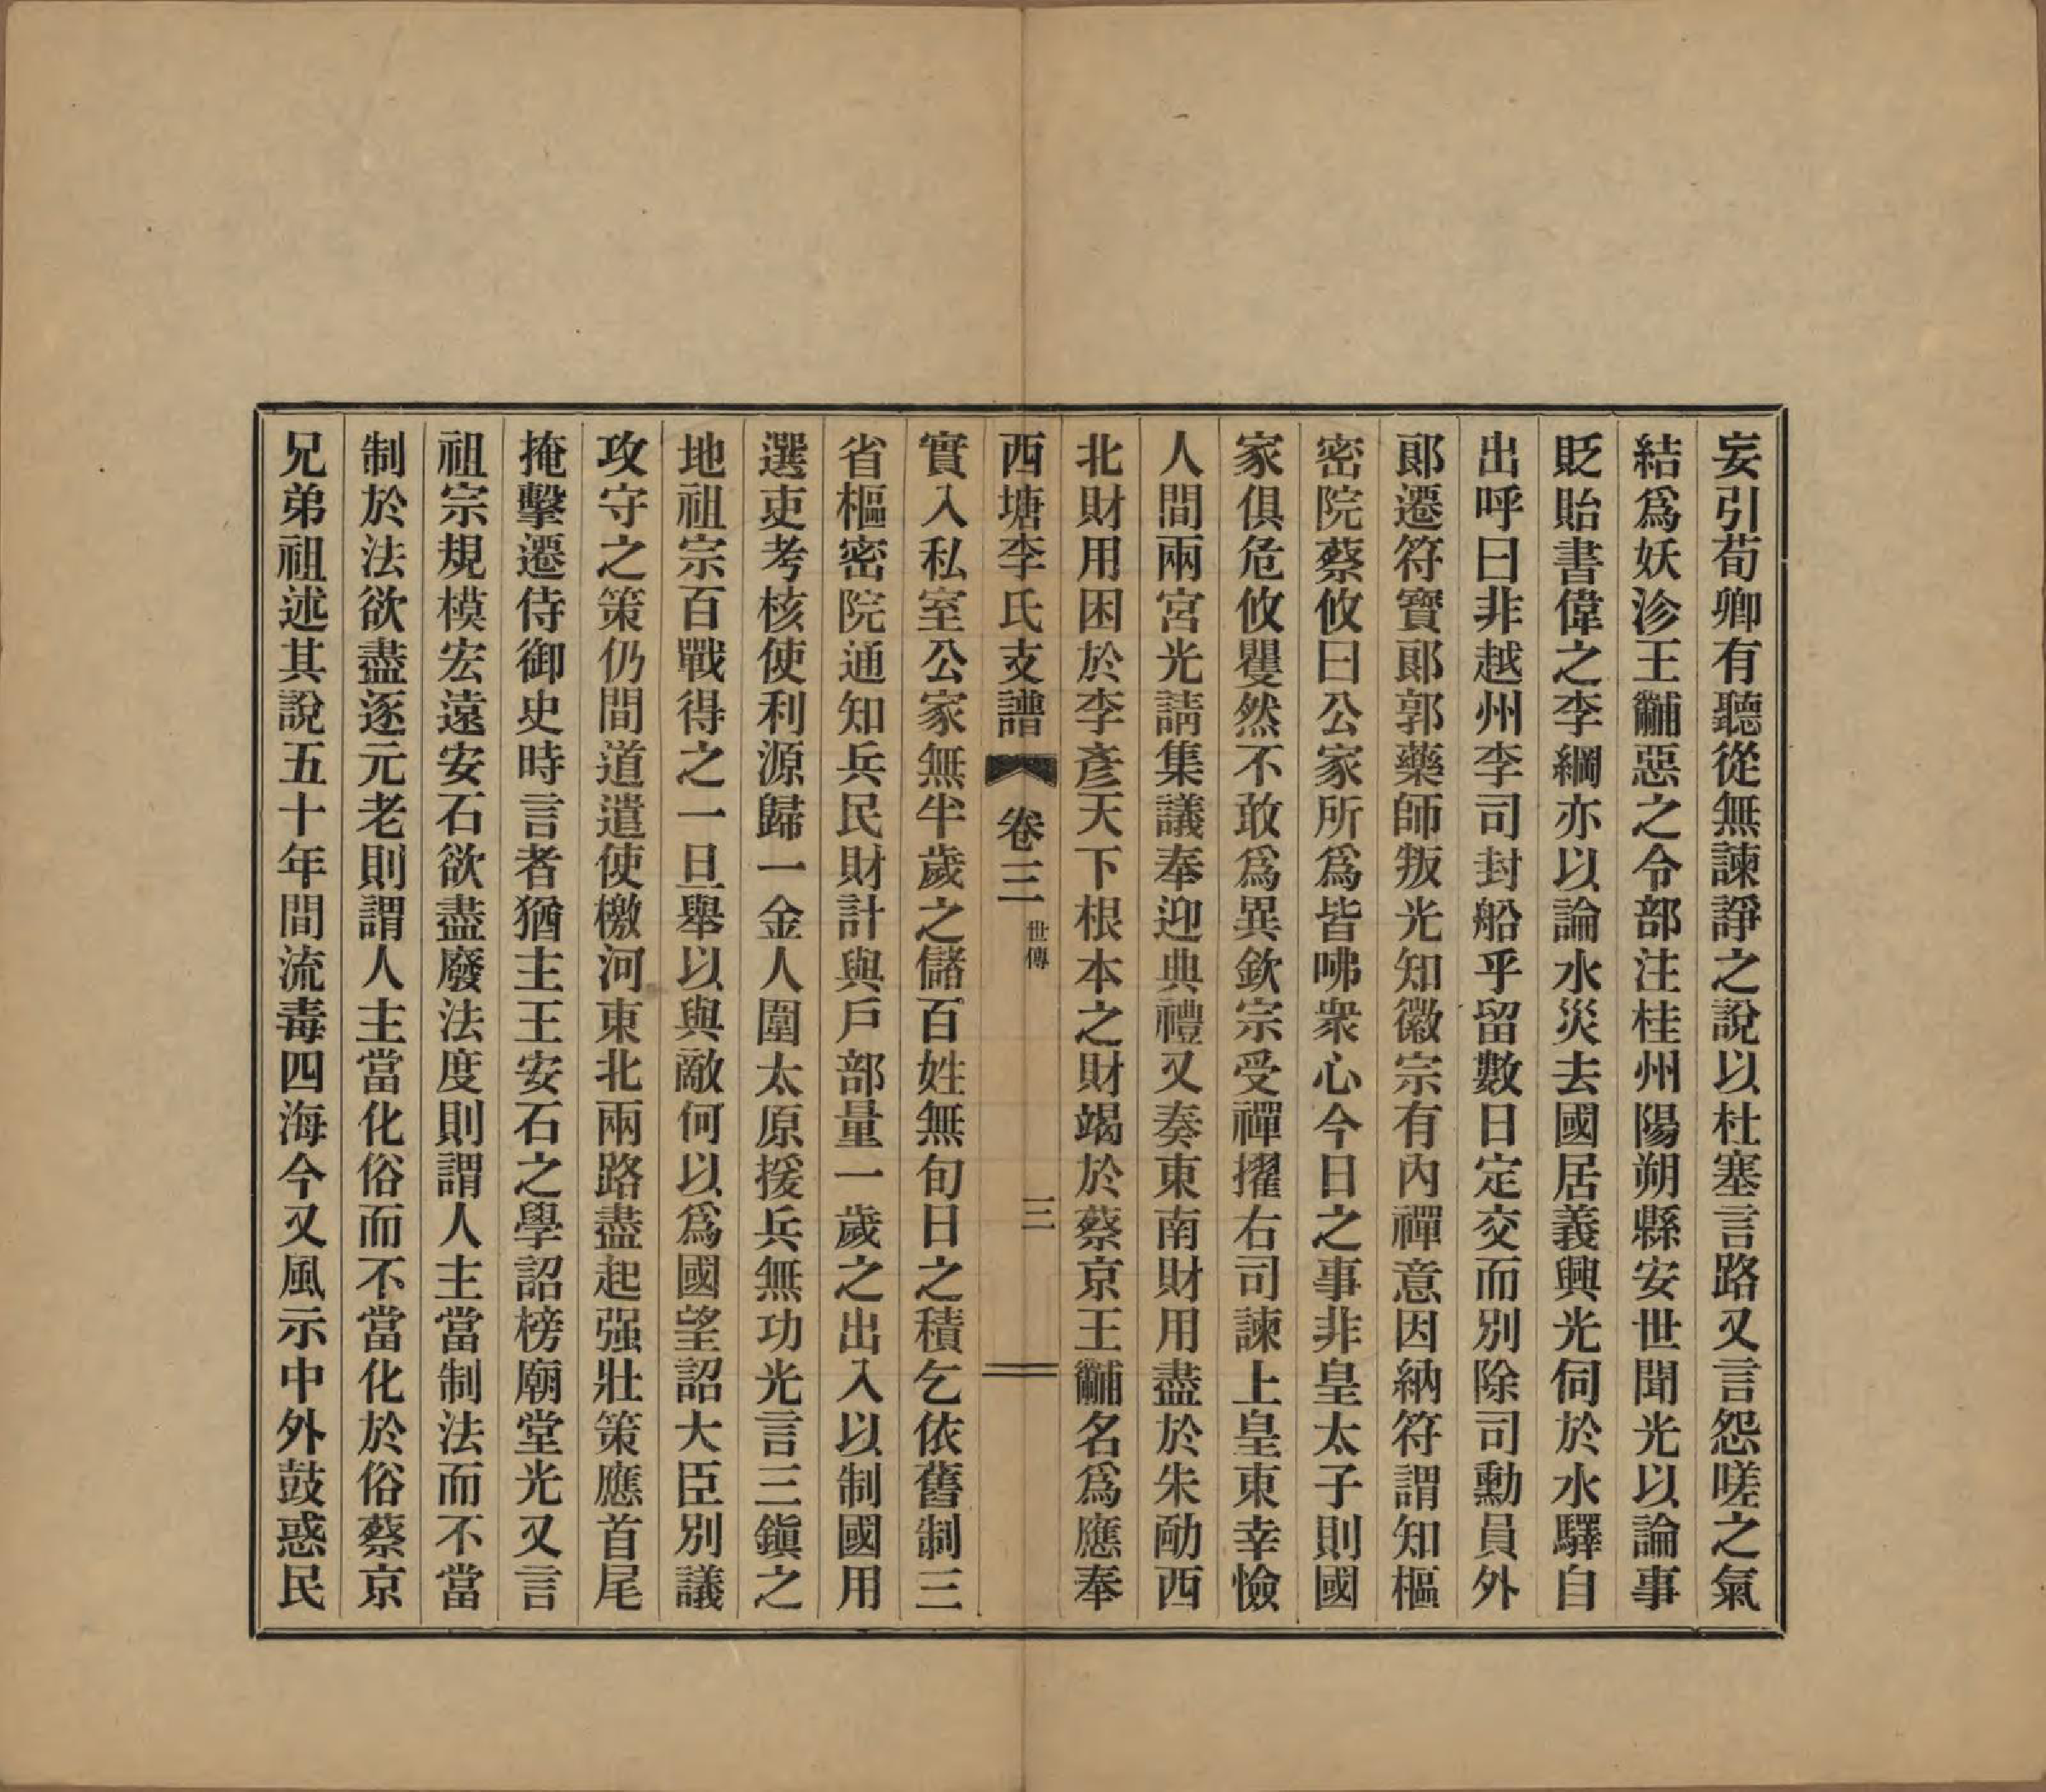 妄引荀卿有聽從無諫諍之說以杜塞言路又言怨嗟之氣
結爲妖沴王黼惡之令部注桂州陽朔縣安世聞光以論事
貶貽書偉之李綱亦以論水災去國居義興光伺於水驛自
出呼曰非越州李司封船乎留數日定交而別除司勳員外
郞遷符寶郞郭藥師叛光知徽宗有內禪意因納符謂知樞
密院蔡攸曰公家所爲皆咈衆心今日之事非皇太子則國
家俱危攸矍然不敢爲異欽宗受禪擢右司諫上皇東幸憸
人間兩宮光請集議奉迎典禮又奏東南財用盡於朱勔西
北財用困於李彥天下根本之財竭於蔡京王黼名爲應奉
西塘李氏支譜 卷三 世傳 三
實入私室公家無半歲之儲百姓無旬日之積乞依舊制三
省樞密院通知兵民財計與戶部量一歲之出入以制國用
選吏考核使利源歸一金人圍太原援兵無功光言三鎭之
地祖宗百戰得之一旦舉以與敵何以爲國望詔大臣別議
攻守之策仍間道遣使檄河東北兩路盡起强壯策應首尾
掩擊遷侍御史時言者猶主王安石之學詔榜廟堂光又言
祖宗規模宏遠安石欲盡廢法度則謂人主當制法而不當
制於法欲盡逐元老則謂人主當化俗而不當化於俗蔡京
兄弟祖述其說五十年間流毒四海今又風示中外鼓惑民